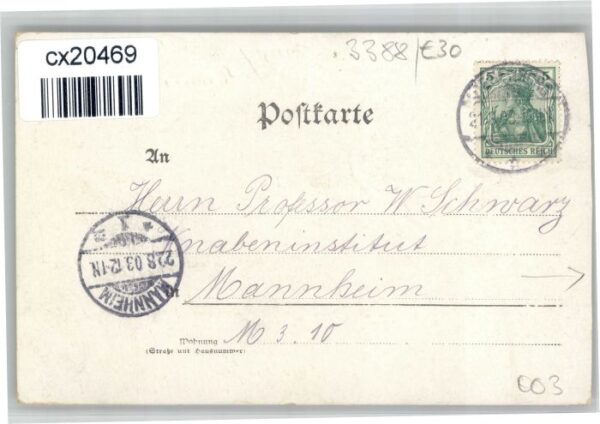 cx20469
3388/€30
Postkarte
DEUTSCHES REICH
An
Herrn Professor W Schwarz
Knabeninstitut
in Mannheim
M 3. 10
Wohnung
(Straße und Hausnummer)
MANNHEIM
22.8.03.12-1N.
1
€03